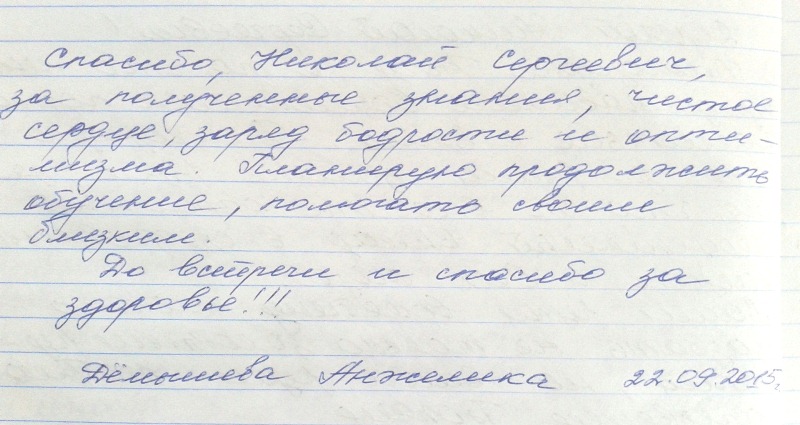 Спасибо, Николай Сергеевич,
за полученные знания, чистое
сердце, заряд бодрости и опти-
мизма. Планирую продолжить
обучение, помогать своим
близким.
До встречи и спасибо за
здоровье!!!
Дёмышева Анжелика 22.09.2015г